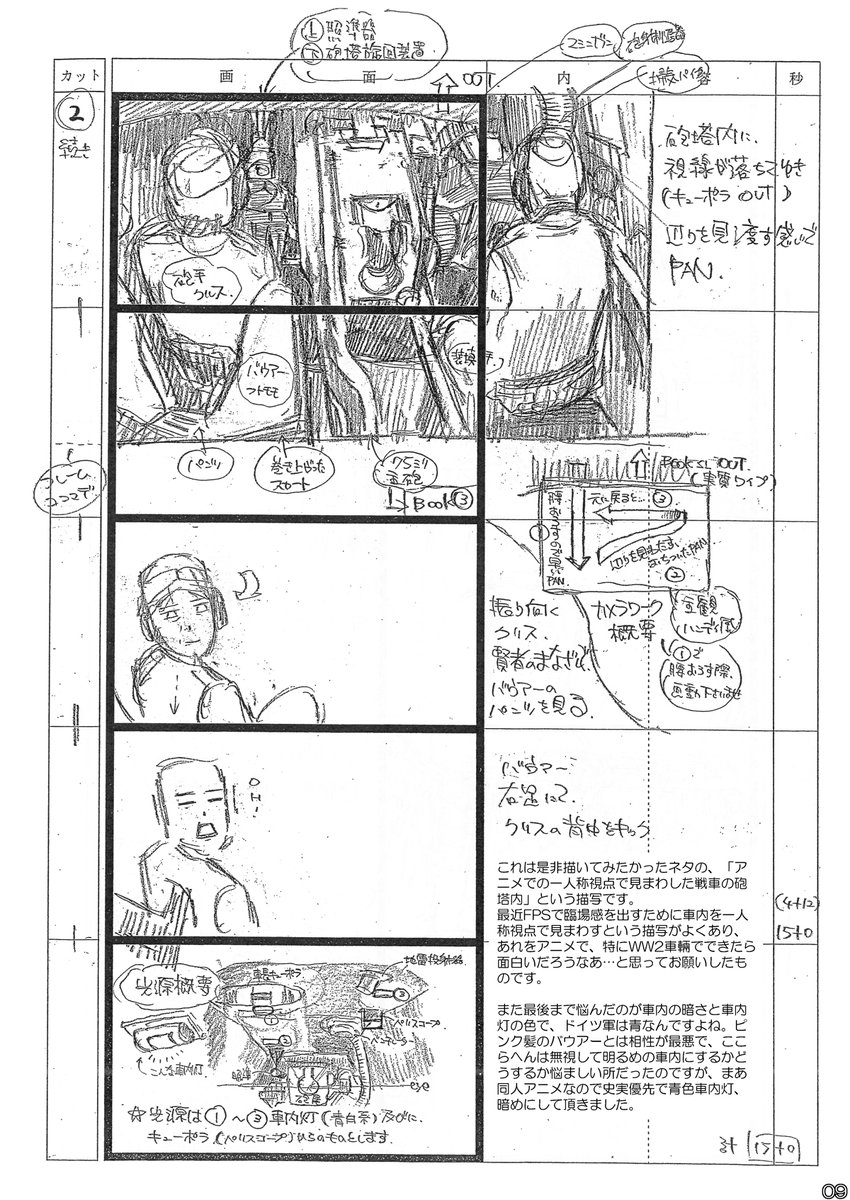 ①照準器
②砲塔旋回装置
カット
画
面
内
容
秒
OUT
2
続き
砲塔内に、
視線が落ちてゆき
(キューポラ OUT)
辺りを見渡す感じで
PAN.
砲手
クルス.
バウアー
フトモモ
パンツ
巻き上がった
スカート
Book③
フレーム
ココマデ
Book SL OUT.
(実質ワイプ)
元に戻ると… ③
②
振り向く
クルス、
賢者のまなざしで、
バウアーの
パンツを見る.
カメラワーク
概要
全観
ハンディ風
①で
腰おろす際、
OH!
バウアー
右足にて、
クルスの背中をキック
これは是非描いてみたかったネタの、「ア
ニメでの一人称視点で見まわした戦車の砲
塔内」という描写です。
最近FPSで臨場感を出すために車内を一人
称視点で見まわすという描写がよくあり、
あれをアニメで、特にWW2車輌でできたら
面白いだろうなあ…と思ってお願いしたも
のです。
また最後まで悩んだのが車内の暗さと車内
灯の色で、ドイツ軍は青なんですよね。ピ
ンク髪のバウアーとは相性が最悪で、ここ
らへんは無視して明るめの車内にするかど
うするか悩ましい所だったのですが、まあ
同人アニメなので史実優先で青色車内灯、
暗めにして頂きました。
(4+12)
15+0
光源概要
車長キューポラ
ペリスコープ
こんな車内灯
照準
砲尾
☆光源は①〜③車内灯(青白系)及びに
キューポラ(ペリスコープ)からのものとします.
計 15+0
09